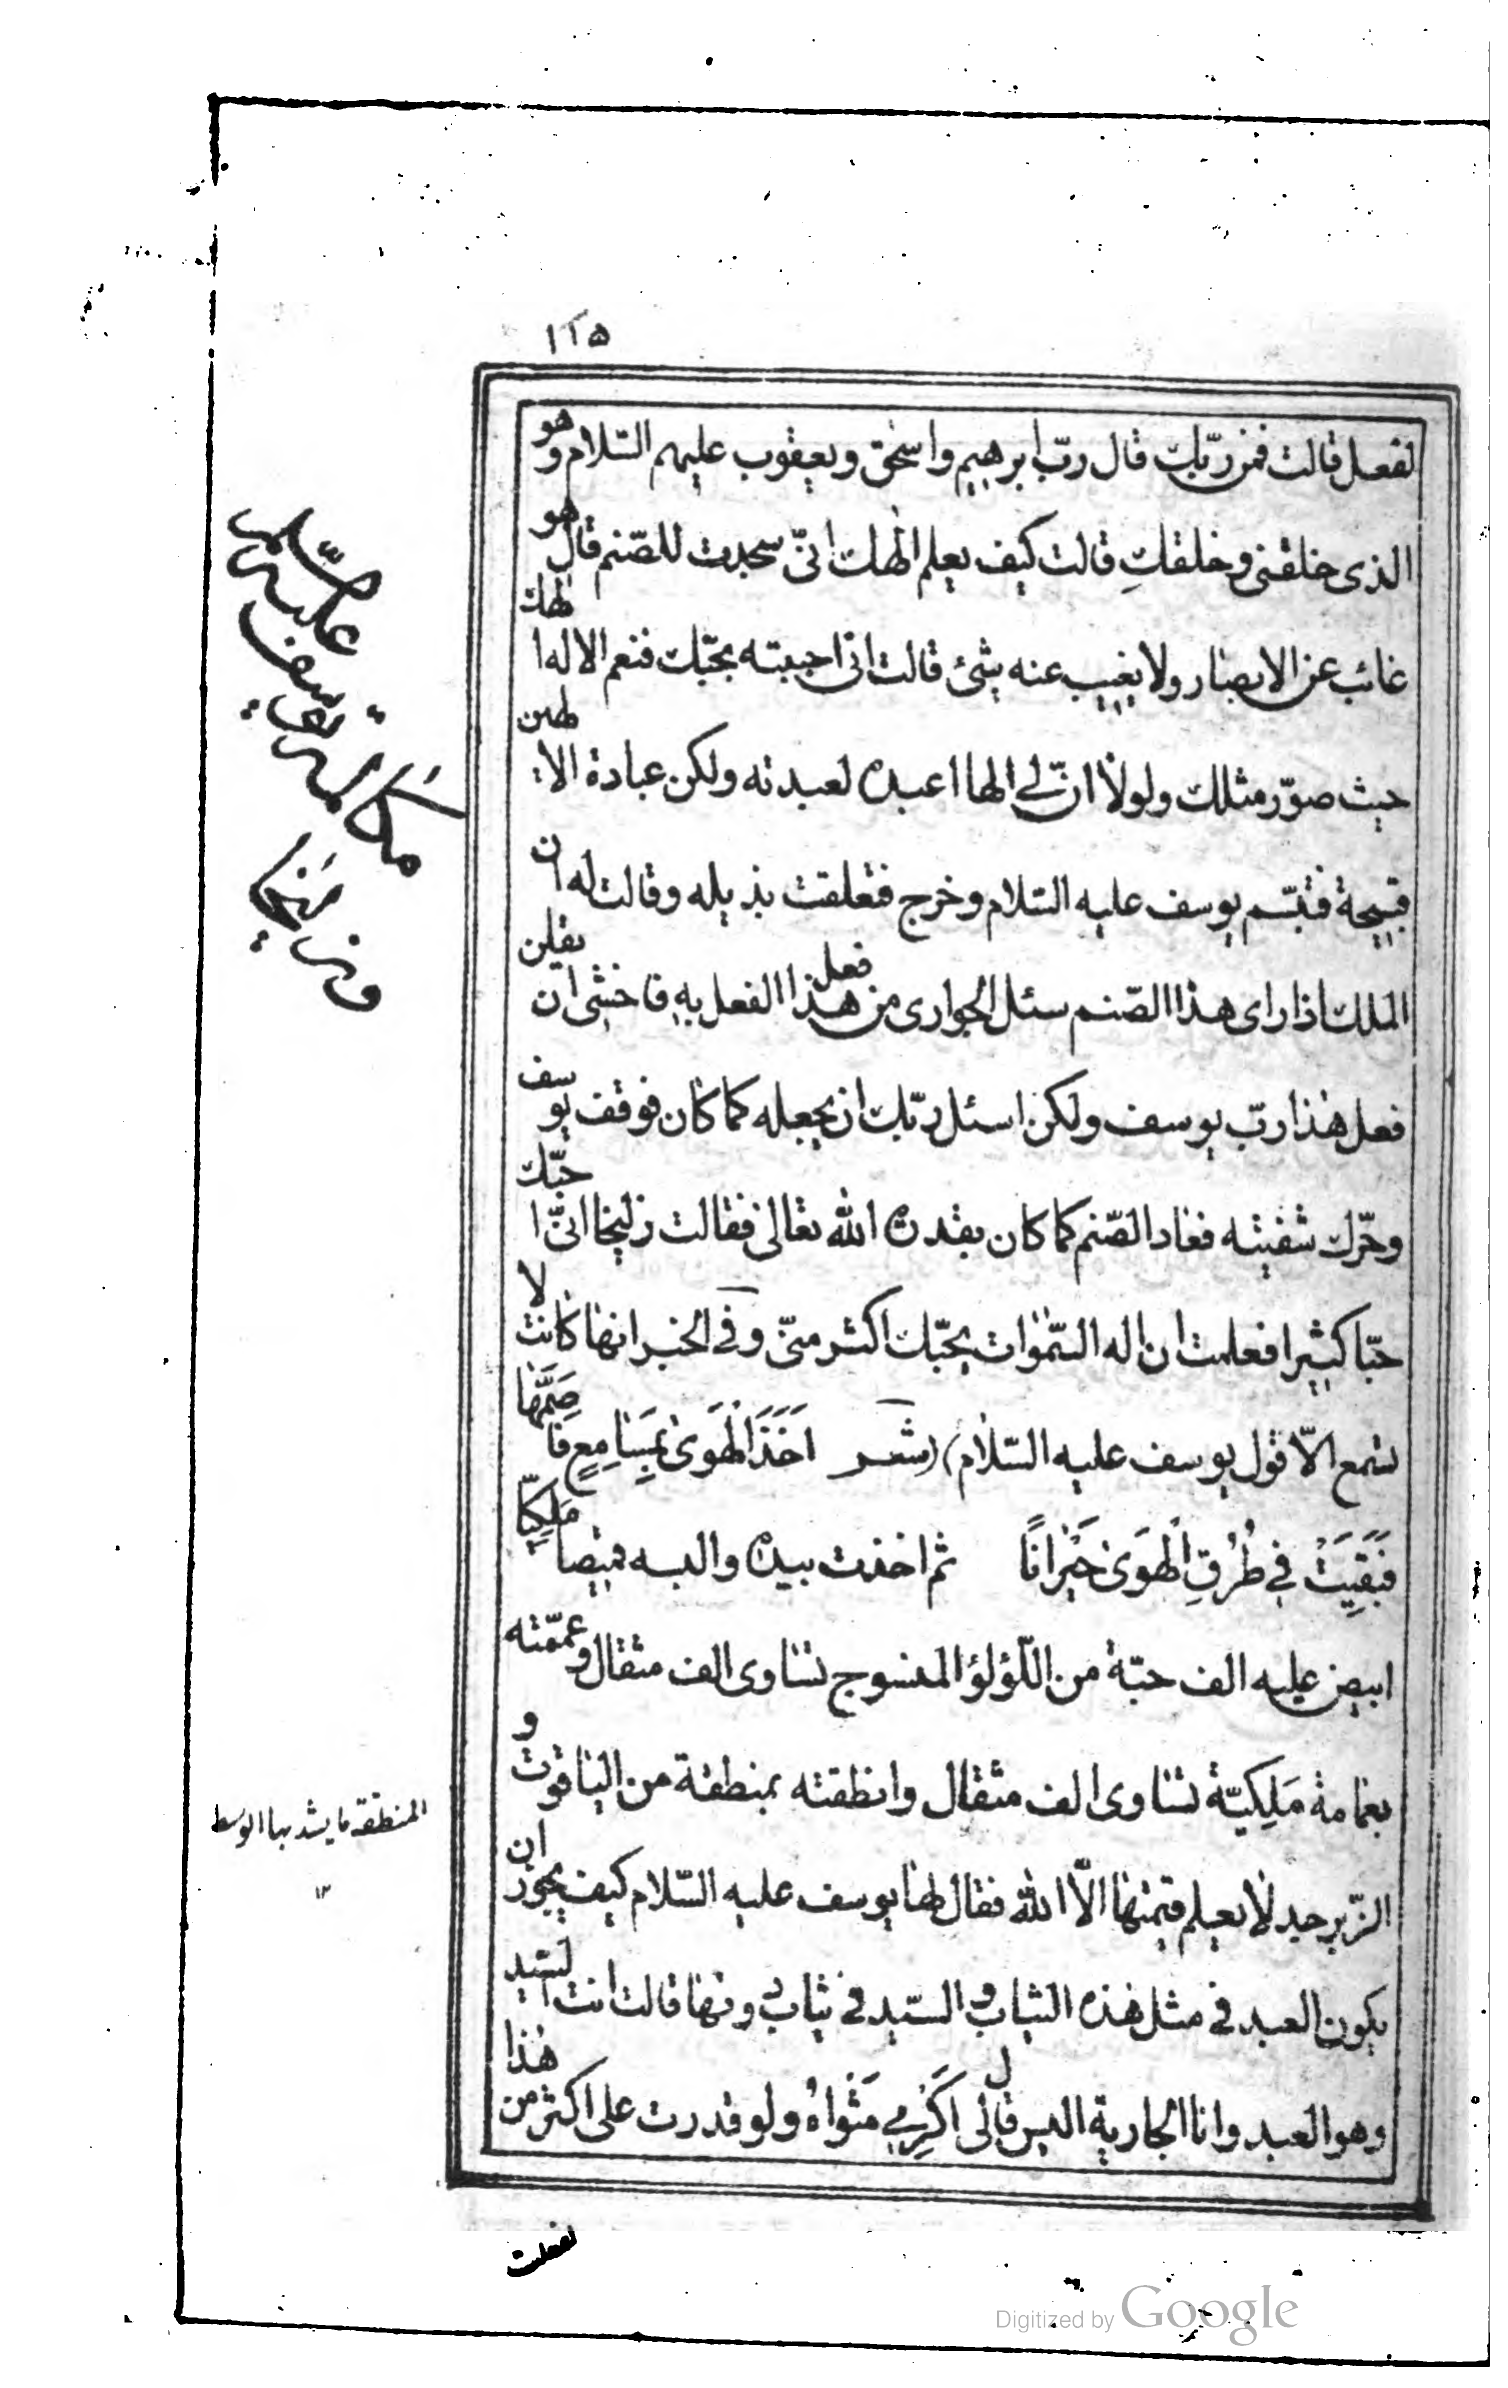 ١٢٥
لفعل قالت فمن ربّك قال ربّ ابرهيم واسحٰق ويعقوب عليهم السّلام وهو
الذى خلقنى وخلقكِ قالت كيف يعلم الٰهك انّى سجدت للصّنم قال هو
غائب عن الابصار ولا يغيب عنه شئ قالت انى احببته بحبّك فنعم الاله الٰهك
حيث صوّر مثلك ولولا انّ لى الها اعبده لعبدته ولكن عبادة الالٰهين
قبيحة فتبسّم يوسف عليه السّلام وخرج فتعلقت بذيله وقالت له ان
الملك اذا راى هذا الصّنم سئل الجوارى من فعل هذا الفعل به فاخشى ان يقلن
فعل هٰذا ربّ يوسف ولكن اسئل ربّك ان يجعله كما كان فوقف يوسف
وحرّك شفيته فعاد الصّنم كما كان بقدرة الله تعالى فقالت زليخا انّى احبّك
حبّا كثيرا فعلمت ان اله السّمٰوات يحبّك اكثر منّى وفى الخبر انها كانت لا
تسمع الّا قول يوسف عليه السّلام (شعر اَخَذَ الْهَوىٰ بِمَسَامِعِى فَاَصَمَّهَا
فَبَقِيَتْ فِى طُرُقِ الْهَوىٰ حَيْرَانًا ثم اخذت بيده والبسه قميصا مَلَكِيًّا
ابيض عليه الف حبّة من اللّؤلؤ المنسوج تساوى الف مثقال وعمّمته
بعمامة مَلِكيّة تساوى الف مثقال وانطقته بمنطقة من الياقوت و
الزّبرجد لا يعلم قيمتها الّا الله فقال لها يوسف عليه السّلام كيف يجوز ان
يكون العبد فى مثل هٰذه الثياب و السّيد فى ثياب دونها قالت انت السّيد
وهو العبد وانا الجارية اليس قال لى اَكْرِمِى مَثْوَاهُ ولو قدرت على اكثر من هٰذا
لفعلت
مكالمهٔ يوسف عليه السّلام
و زليخا
المنطقة ما يشد بها الوسط
١٢
Digitized by Google